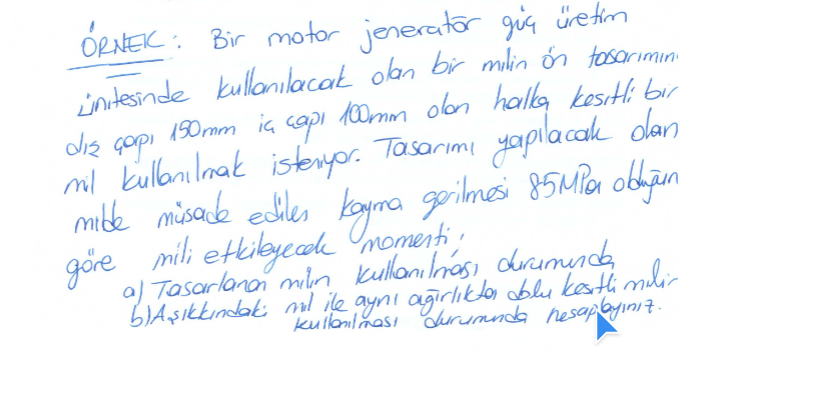 ÖRNEK: Bir motor jeneratör güç üretim
ünitesinde kullanılacak olan bir milin ön tasarımın
dış çapı 150mm iç çapı 100mm olan halka kesitli bir
mil kullanılmak isteniyor. Tasarımı yapılacak olan
milde müsade edilen kayma gerilmesi 85MPa olduğun
göre mili etkileyecek momenti;
a) Tasarlanan milin kullanılması durumunda
b) A şıkkındaki mil ile aynı ağırlıkta dolu kesitli milin
kullanılması durumunda hesaplayınız.